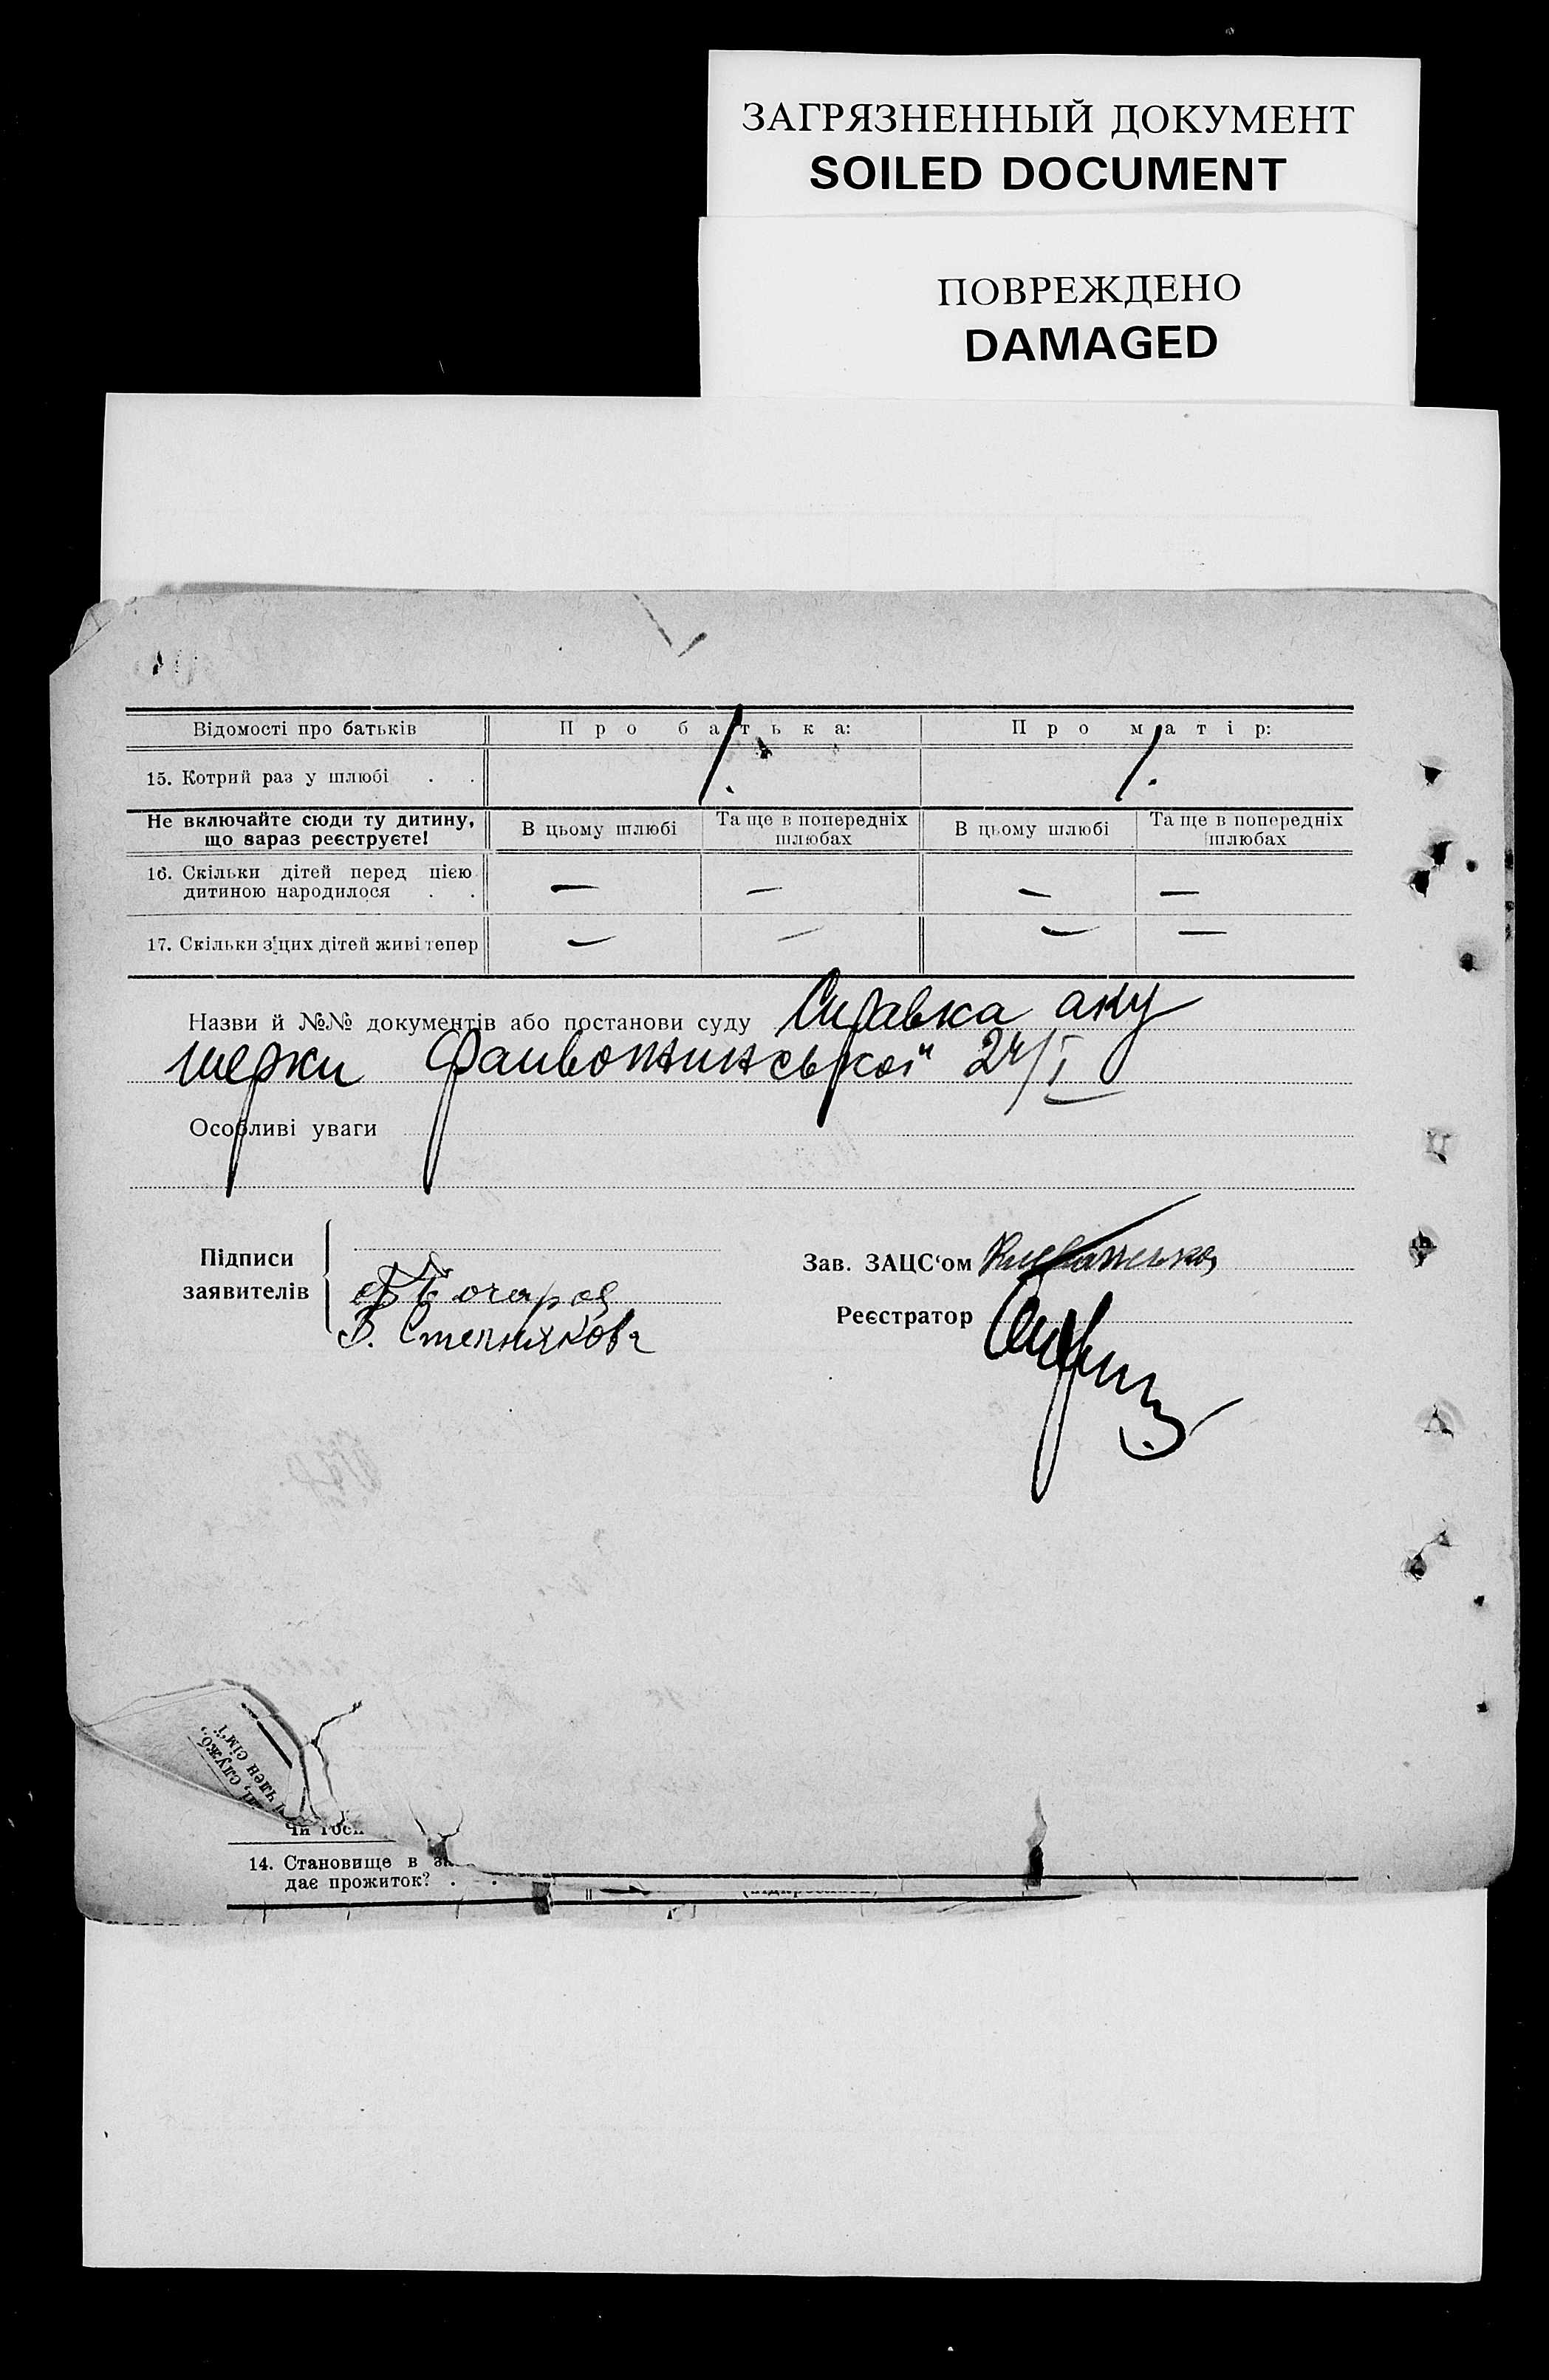 ЗАГРЯЗНЕННЫЙ ДОКУМЕНТ
SOILED DOCUMENT
ПОВРЕЖДЕНО
DAMAGED
Відомості про батьків Про батька: Про матір:
15. Котрий раз у шлюбі . . 1. 1.
Не включайте сюди ту дитину, що зараз реєструєте! В цьому шлюбі Та ще в попередніх шлюбах В цьому шлюбі Та ще в попередніх шлюбах
16. Скільки дітей перед цією дитиною народилося . . — — — —
17. Скільки з цих дітей живі тепер — — — —
Назви й №№ документів або постанови суду Справка аку
шерки 24/I
Особливі уваги
Підписи
заявителів
Зав. ЗАЦС'ом
Бочаров
Реєстратор
В. Степнякова
служб.,
член сім'ї
Чи
14. Становище в
дає прожиток? . .